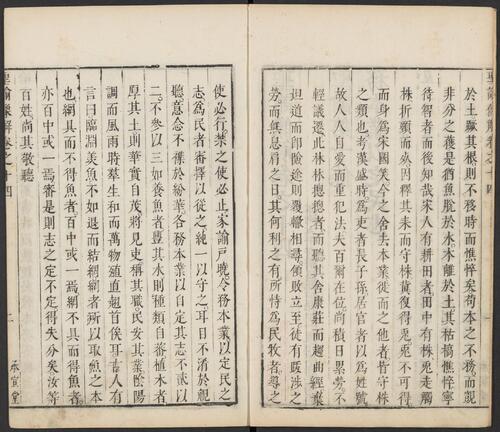 聖諭像解卷之十四
於土蹶其根則不移時而憔悴矣苟本之不務而覬
非分之獲是猶魚脫於水木離於土其枯槁憔悴寧
待智者而後知哉宋人有耕田者田中有株兎走觸
株折頸而死因釋其耒而守株冀復得兎兎不可得
而身為宋國笑今之舍去本業從而之他者皆守株
之類也考漢盛時為吏者長子孫居官者以為姓號
故人人自愛而重犯法夫百爾在位尚積日累勞不
輕議遷此林林總總者而聽其舍康莊而趨曲徑棄
坦道而即險途則覆轍相尋傾敗立至徒有跋涉之
勞而無息肩之日其何利之有所恃為民牧者導之
使必行禁之使必止家諭戶曉令務本業以定民之
志為民者審擇以從之純一以守之耳目不淆於觀
聽意念不襍於紛華各務本業以自定其志不貳以
二不參以三如養魚者豐其水則種類自蕃植木者
厚其土則華實自茂將見吏稱其職民安其業陰陽
調而風雨時羣生和而萬物殖直翹首俟耳古人有
言曰臨淵羨魚不如退而結網網者所以取魚之本
也網具而不得魚者百中或一焉網不具而得魚者
亦百中或一焉審是則志之定不定得失分矣汝等
百姓尚其敬聽
聖諭像解卷之十四 二 承宣堂